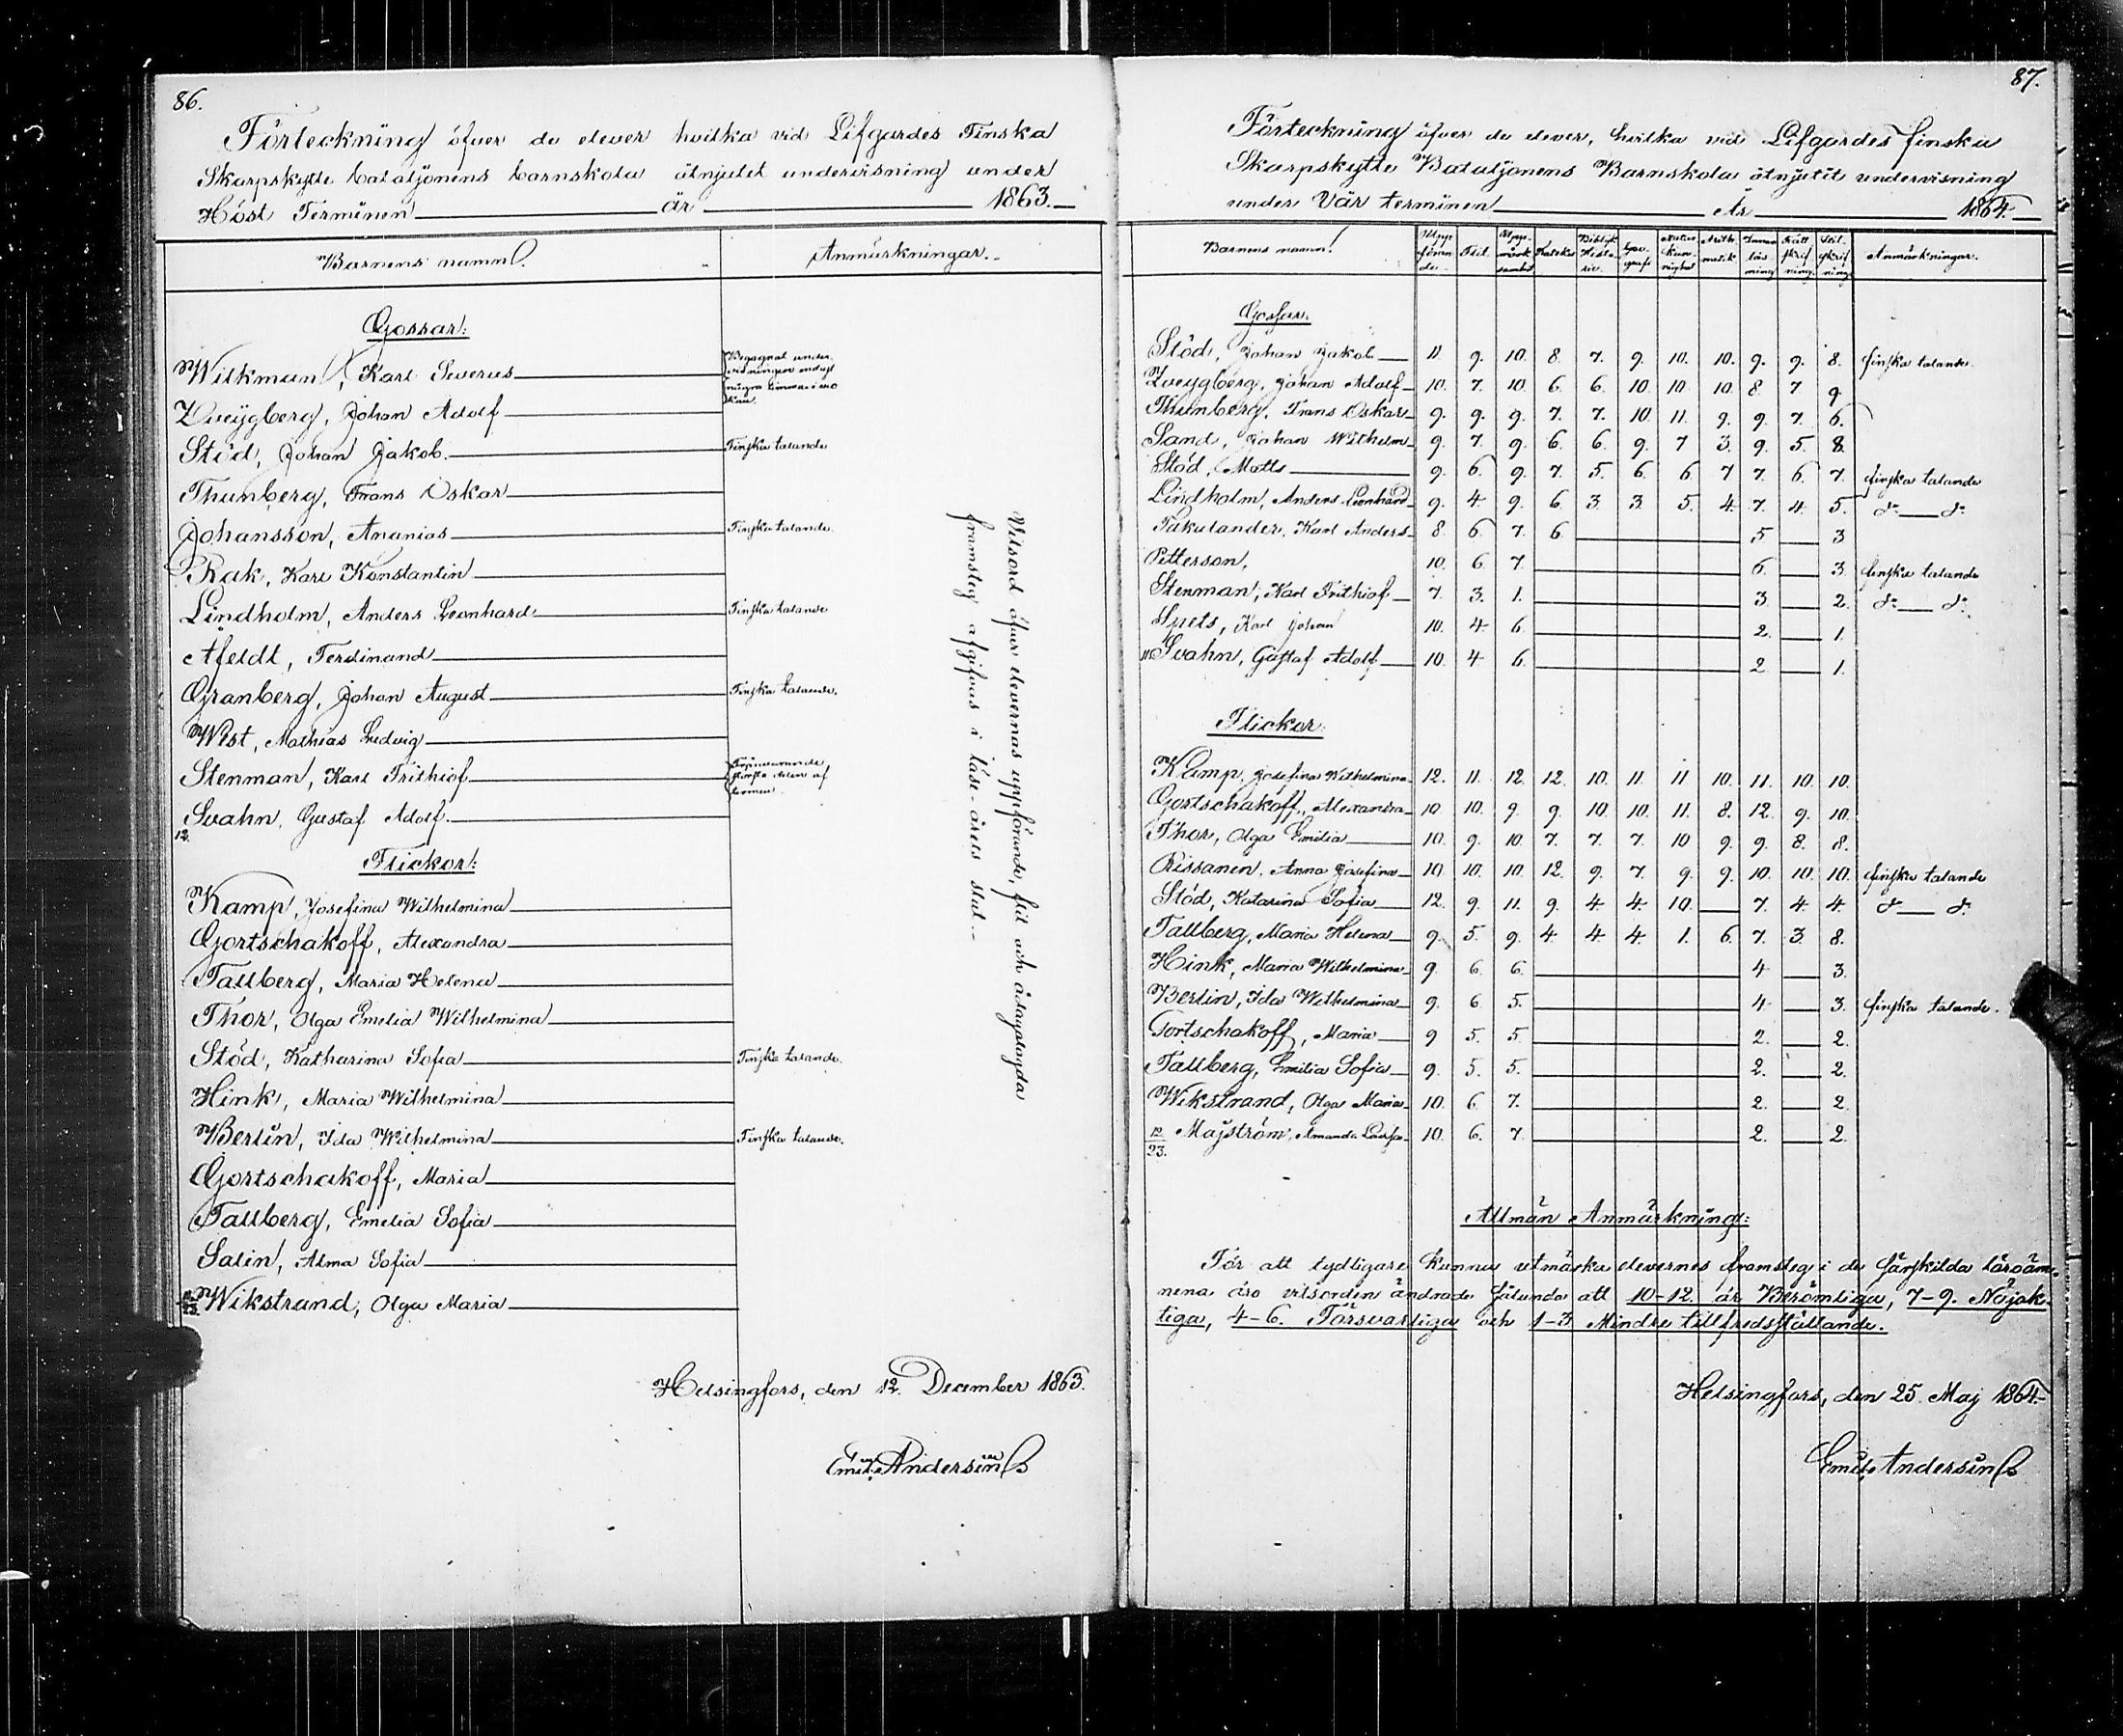 86.
Förteckning öfver de elever hvilka vid Lifgardes Finska
Skarpskytte bataljonens barnskola åtnjutit undervisning under
Höst Terminen år 1863.
Barnens namn. Anmärkningar.
Gossar:
Wilkman, Karl Severus Begagnat under-
visningen endast
några timmar i vec
kan.
Zweygberg, Johan Adolf
Stöd, Johan Jakob. Finska talande
Thunberg, Frans Oskar
Johansson, Ananias Finska talande.
Rak, Karl Konstantin
Lindholm, Anders Leonhard Finska talande
Afeldt, Ferdinand
Granberg, Johan August Finska talande.
Wist, Mathias Ludvig
Stenman, Karl Frithiof Frånvarande
största delen af
termin.
Svahn, Gustaf Adolf.
12.
Flickor:
Kamp, Josefina Wilhelmina
Gortschakoff, Alexandra
Tallberg, Maria Helena
Thor, Olga Emelia Wilhelmina
Stöd, Katharina Sofia Finska talande.
Hink, Maria Wilhelmina
Berlin, Ida Wilhelmina Finska talande.
Gortschakoff, Maria
Tallberg, Emelia Sofia
Salin, Alma Sofia
Wikstrand, Olga Maria
Vitsord öfver elevernas uppförande, flit och ådagalagda
framsteg afgifvas i läse-årets slut.
Helsingfors, den 12. December 1863.
Emil Andersin
87.
Förteckning öfver de elever, hvilka vid Lifgardes finska
Skarpskytte Bataljonens Barnskola åtnjutit undervisning
under Vår terminen År 1864.
Barnens namn. Upp förande. Flit. Upp-märk samhet Kateches Biblisk Histo-rie. Geo-grafi Natur-kun-nighet Arith-metik Innan läs ning Rätt skrif ning. Skön-skrif ning. Anmärkningar.
Gossar.
Stöd, Johan Jakob 11. 9. 10. 8. 7. 9. 10. 10. 9. 9. 8. finska talande.
Zweygberg, Johan Adolf 10. 7. 10 6. 6. 10. 10. 10 8. 7 9
Thunberg, Frans Oskar 9. 9. 9. 7. 7. 10 11. 9. 9. 7. 6.
Sand, Johan Wilhelm 9. 7. 9. 6. 6. 9. 7 3. 9. 5. 8.
Stöd, Matts 9. 6. 9. 7. 5. 6. 6. 7 7. 6. 7. finska talande
Lindholm, Anders Leonhard 9. 4. 9. 6. 3. 3. 5. 4. 7. 4. 5. d:o d:o
Takulander, Karl Anders 8. 6. 7. 6. 5 3
Petterson, 10. 6. 7. 6. 3. finska talande
Stenman, Karl Frithiof 7. 3. 1. 3. 2. d:o d:o
Spets, Karl Johan 10. 4. 6. 2. 1.
11. Svahn, Gustaf Adolf 10. 4 6. 2. 1.
Flickor:
Kamp, Josefina Wilhelmina 12. 11. 12. 12. 10. 11. 11 10. 11. 10. 10.
Gortschakoff, Alexandra 10 10. 9. 9. 10. 10. 11. 8. 12. 9. 10.
Thor, Olga Emilia 10. 9. 10. 7. 7. 7. 10 9. 9. 8. 8.
Rissanen, Anna Josefina 10. 10. 10. 12. 9. 7. 9. 9. 10. 10. 10. finska talande
Stöd, Katarina Sofia 12. 9. 11. 9. 4. 4. 10. 7. 4. 4. d:o d:o
Tallberg, Maria Helena 9. 5. 9. 4. 4. 4. 1. 6. 7. 3. 8.
Hink, Maria Wilhelmina 9. 6. 6. 4 3.
Berlin, Ida Wilhelmina 9. 6 5. 4 3. finska talande.
Gortschakoff, Maria 9 5. 5. 2. 2.
Tallberg, Emilia Sofia 9. 5. 5. 2. 2.
Wikstrand, Olga Maria 10. 6 7. 2. 2.
12/23. Majström, Amanda 10. 6. 7. 2. 2.
Allmän Anmärkning:
För att tydligare kunna utmärka elevernes framsteg i de särskilda läroäm-
nena äro vitsorden ändrade sålunda att 10-12. är Berömliga, 7-9. Nöjak-
tiga, 4-6. Försvarliga och 1-3. Mindre tillfredsställande.
Helsingfors, den 25. Maj 1864.
Emil Andersin